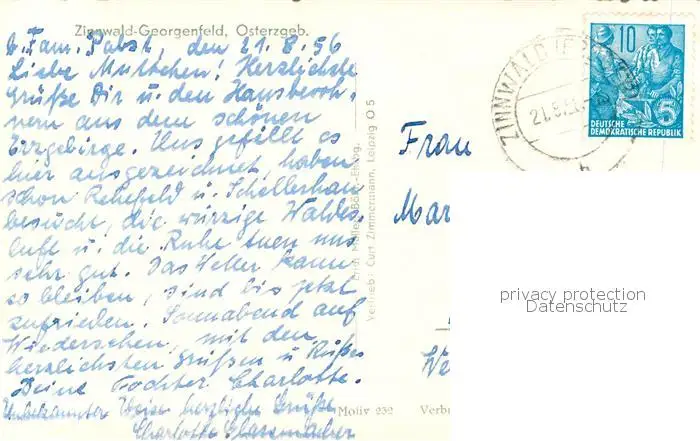 Zinnwald-Georgenfeld, Osterzgeb.
b. Fam. Pabst, den 21.8.56
Liebe Muttchen! Herzlichste
Grüße Dir u. den Hausbewoh-
nern aus dem schönen
Erzgebirge. Uns gefällt es
hier ausgezeichnet, haben
schon Rehefeld u. Schellerhau
besucht, die würzige Waldes-
luft u. die Ruhe tuen uns
sehr gut. Das Wetter kann
so bleiben, sind bis jetzt
zufrieden. Sonnabend auf
Wiedersehen, mit den
herzlichsten Grüßen u. Küßen
Deine Tochter Charlotte.
Unbekannter Weise herzliche Grüße
Charlotte
Vertrieb: Curt Zimmermann, Leipzig O 5
Motiv 232
ZINNWALD (ERZ
21.8.5
10
5
DEUTSCHE
DEMOKRATISCHE REPUBLIK
Frau
Mar
privacy protection
Datenschutz